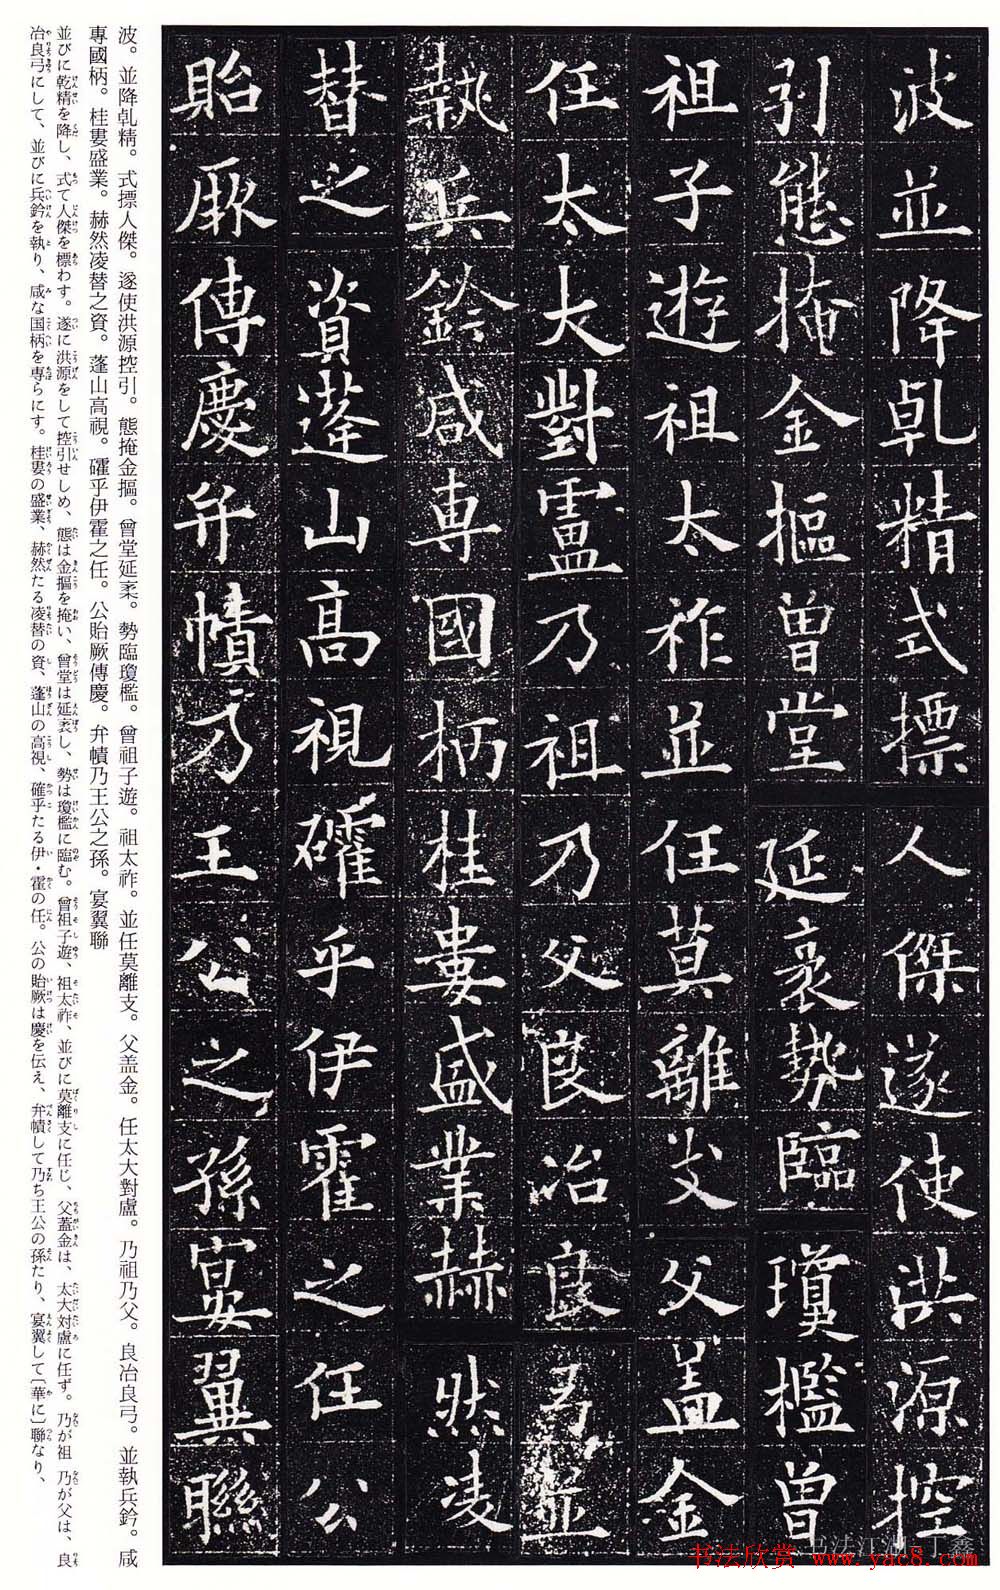 波並降乹精式摽人傑遂使洪源控
引態掩金摳曾堂延袤勢臨瓊檻曾
祖子遊祖太祚並任莫離支父盖金
任太大對盧乃祖乃父良冶良弓並
執兵鈐咸専國柄桂婁盛業赫然凌
替之資蓬山高視確乎伊霍之任公
貽厥傳慶弁幘乃王公之孫宴翼聯
波。並降乹精。式摽人傑。遂使洪源控引。態掩金摳。曾堂延袤。勢臨瓊檻。曾祖子遊。祖太祚。並任莫離支。父盖金。任太大對盧。乃祖乃父。良冶良弓。並執兵鈐。咸
專國柄。桂婁盛業。赫然凌替之資。蓬山高視。確乎伊霍之任。公貽厥傳慶。弁幘乃王公之孫。宴翼聯
並びに乾精を降し、式て人傑を標わす。遂に洪源をして控引せしめ、態は金摳を掩い、曾堂は延袤し、勢は瓊檻に臨む。曾祖子遊、祖太祚、並びに莫離支に任じ、父蓋金は、太大対盧に任ず。乃が祖 乃が父は、良
冶良弓にして、並びに兵鈐を執り、咸な国柄を専らにす。桂婁の盛業、赫然たる凌替の資、蓬山の高視、確乎たる伊・霍の任。公の貽厥は慶を伝え、弁幘して乃ち王公の孫たり、宴翼して〔華に〕聯なり、
书法江湖 丁鑫
书法欣赏 www.yac8.com